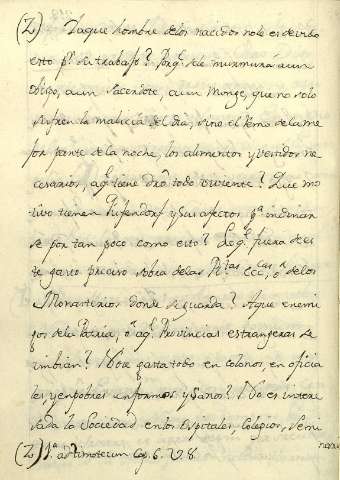 (Z) Y aque hombre delos nacidos nole es devido
esto pr. su trabajo? Porqe. se murmura aun
Obispo, aun Sacerdote, aun Monge, que no solo
sufren la malicia del dia, sino el Yemo dela me
jor parte de la noche, los alimentos y vestidos ne
cesarios, aqe. tiene dro. todo viviente? Que mo
tivo tienen Pufendorf y sus afectos pa. indignar
se por tan poco como esto? Lo qe. fuera de es
te gasto preciso sobra delas Rtas. Eccas., o delos
Monasterios donde se guarda? Aque enemi
gos dela Patria, o aqe. Provincias estrangeras se
imbian? No se gasta todo en colonos, en oficia
les y en pobres enfermos y sanos? No es intere
sada la Sociedad en los Ospitales, Colegios, Semi
narios
(Z) 1a. ad Timoteum Cap. 6. v. 8.